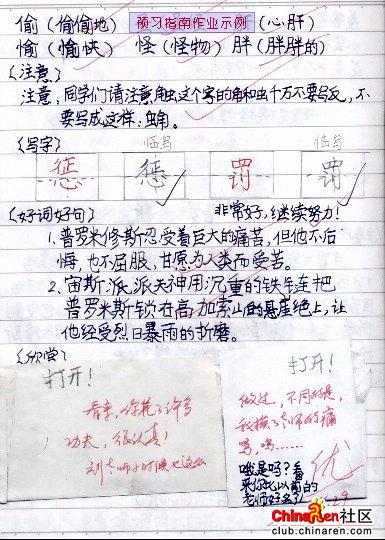 偷（偷偷地） 预习指南作业示例 （心肝）
愉（愉快） 怪（怪物）胖（胖胖的）
〈注意〉
注意，同学们请注意，触这个字的角和虫千万不要写反，不
要写成这样：虫角。
〈写字〉 临写 临写
惩 惩 罚 罚
〈好词好句〉 非常好，继续努力！
1.普罗米修斯忍受着巨大的痛苦，但他不后
悔，也不屈服，甘愿为人类而受苦。
2.宙斯派派夫神用沉重的铁链把
普罗米斯锁在高加索山的悬崖绝上，让
他经受烈日暴雨的折磨。
〈欣赏〉
打开！
看来，你花了许多
功夫，很认真！
刘老师小时候也这么
打开！
做过，不同的是，
我换了老师的痛
骂，呜……
哦是吗？看
来你比以前的
老师好多了！
优
ChinaRen社区
club.chinaren.com